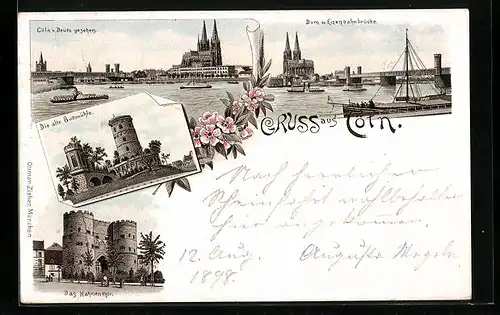 Cöln v. Deutz gesehen.
Dom u. Eisenbahnbrücke.
Die alte Bottmühle.
GRUSS aus Cöln.
Nach herrlicher
Rheinfahrt wohlbehalten
hier angekommen.
12. Aug. Auguste
1898.
Das Hahnenthor.
Ottmar Zieher, München